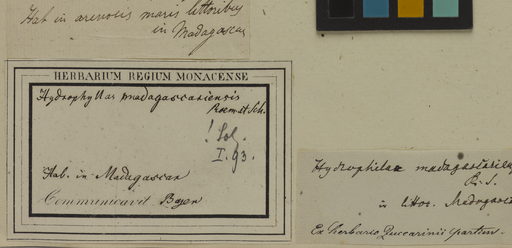 Hab in arenosis maris littoribus
in Madagascar
HERBARIUM REGIUM MONACENSE
Hydrophylax madagascariensis
Roem et Sch.
! Sol.
I. 93.
Hab. in Madagascar
Communicavit Bojer
Hydrophilax madagascariens
R. S.
in littor. Madagascar
Ex herbario Zuccarinii partim.